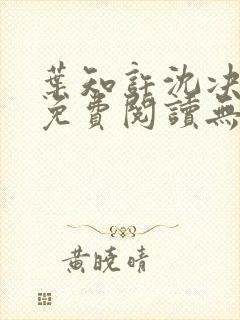 葉知許沈決
免費閱讀無
黃曉晴